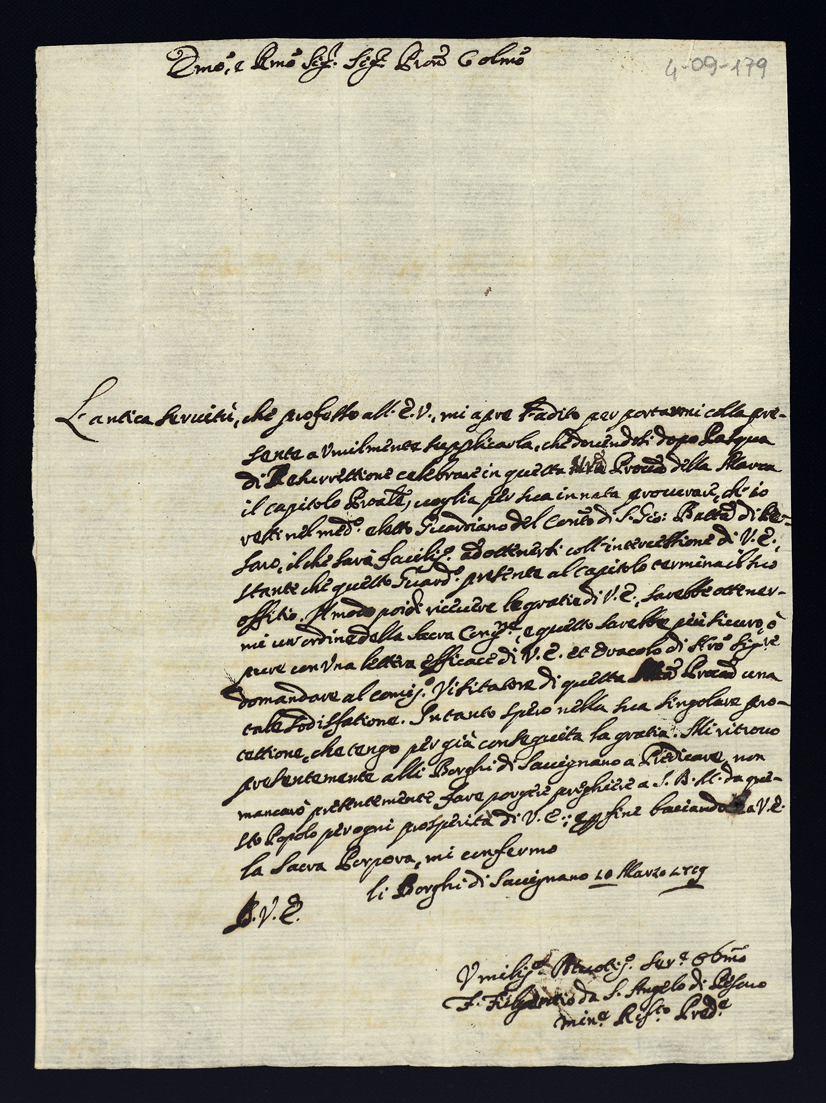 Emo, e Rmo Sig.r Sig.r Prõn Colmo
4-09-179
L'antica servitù, che professo all'E.V., mi apre l'adito per portarmi colla pre-
sente a Umilmente supplicarla, che dovendosi dopo Pasqua
di Resurrettione celebrare in questa Prov.a della Marca
il capitolo Prõale, voglia per sua innata procurare, ch'io
resti nel med.o eletto Guardiano del Conv.o di S. Gio: Batta di Pe-
saro, il che sarà facilis.o ad ottenersi coll'intercessione di V.E.,
stante che questo Guard.o presente al capitolo termina il suo
offitio. Il modo poi di ricevere le gratie di V.E., sarebbe ottener-
mi un'ordine della Sacra Cong.ne, e questo sarebbe più sicuro, ò
pure con Una lettera efficace di V.E. et Oracolo di Nrõ Sig.re
domandare al comis.o Visitatore di questa Prov.a una
tale sodisfatione. Intanto spero nella sua singolare pro-
tettione, che tengo per già conseguita la gratia. Mi ritrovo
presentemente alli Borghi di Savignano a Predicare, non
mancarò presentemente fare porgere preghiere a S.B.M. da que-
sto Popolo per ogni prosperità di V.E.; e per fine baciando a V.E.
la Sacra Porpora, mi confermo
li Borghi di Savignano 10 Marzo 1719
D.V.E.
Umilis.o Devotis.o Ser.e Obmo
F. da S. Angelo di Pesaro
Min.e Rif.to Pred.e